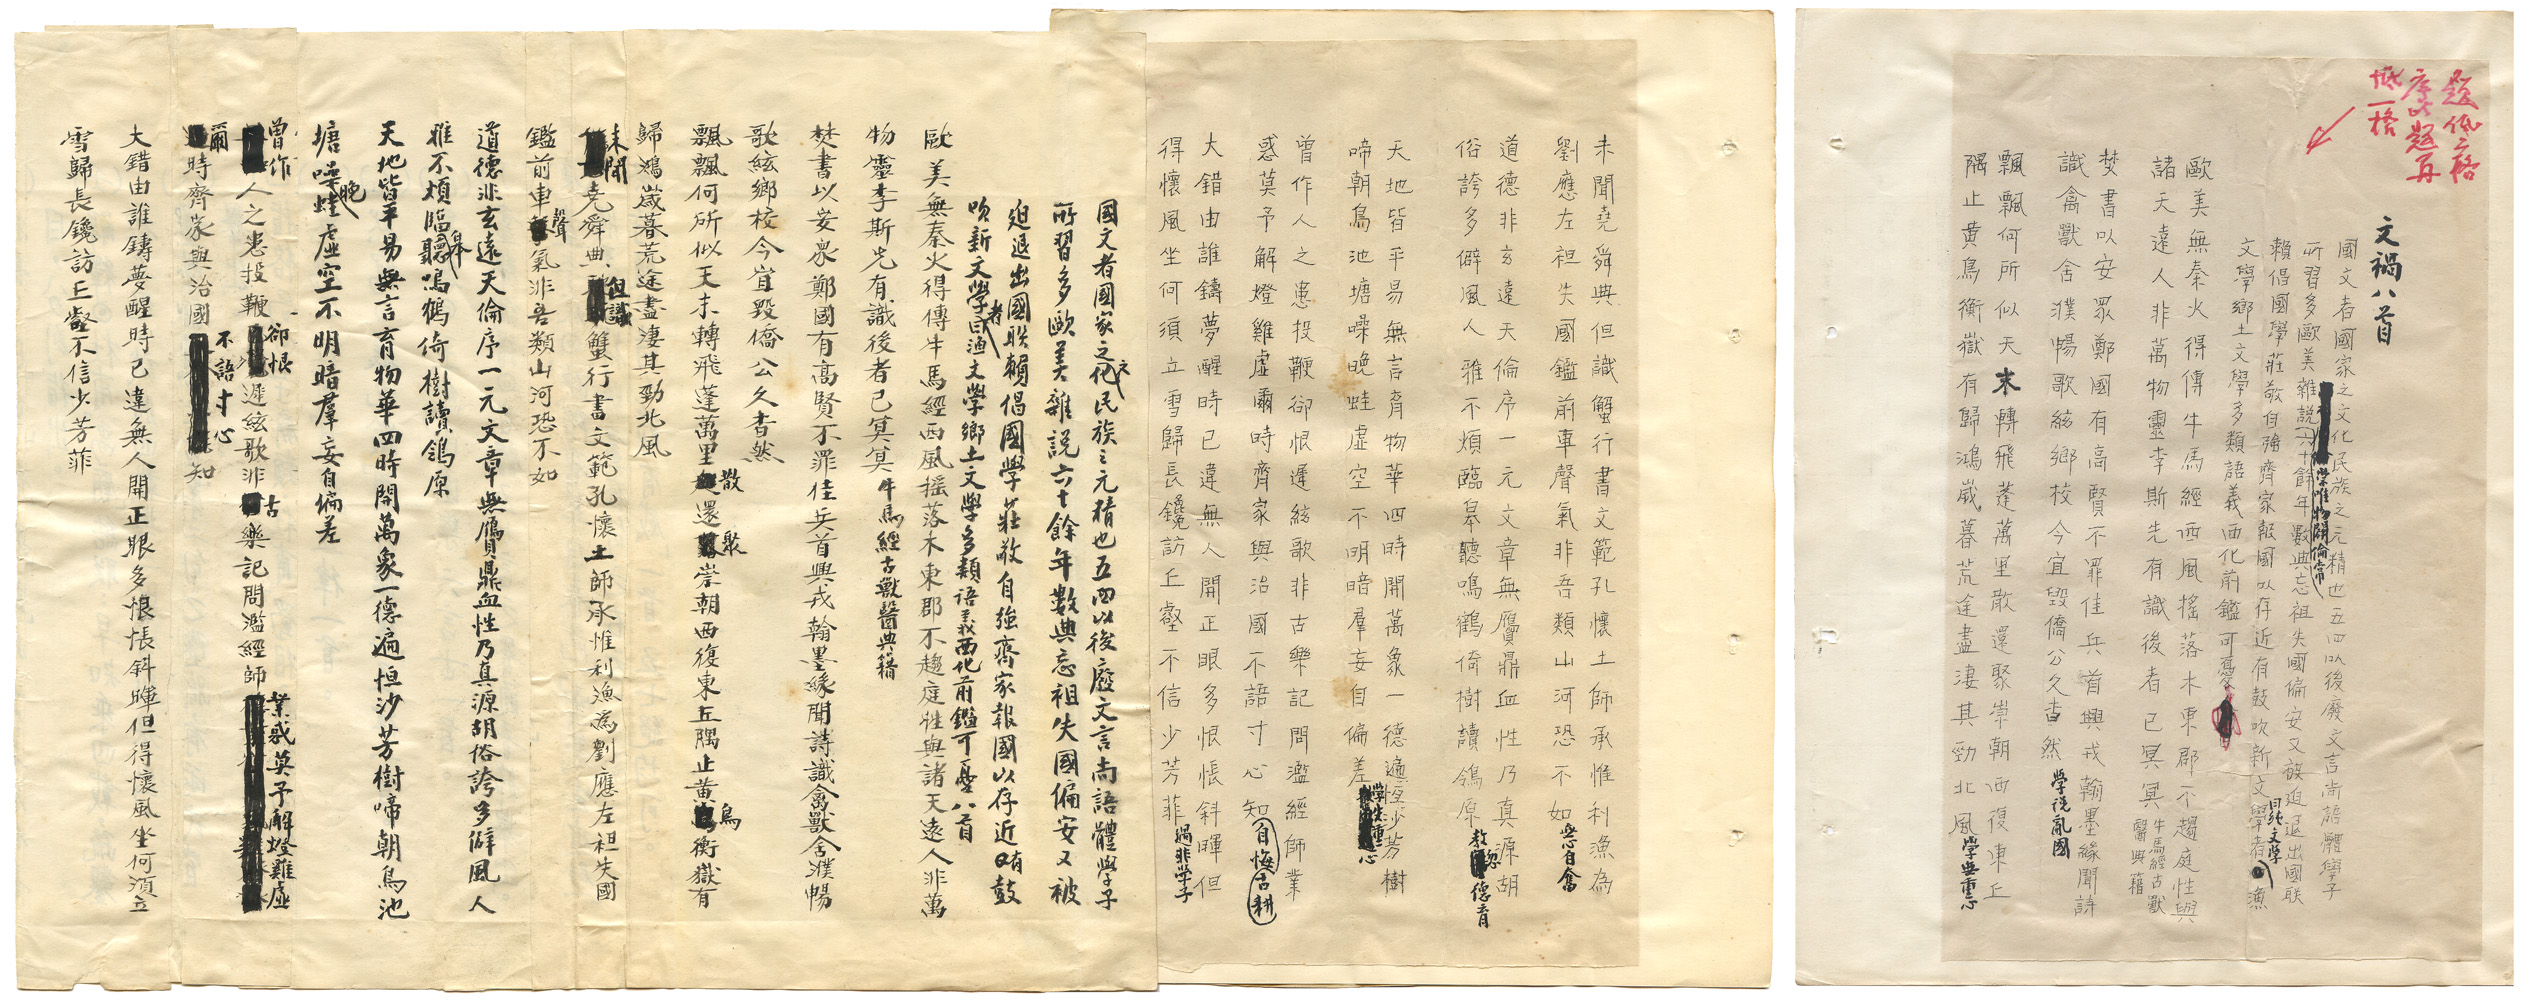 題低二格
序比題再
低一格
文禍八首
國文者國家之文化民族之元精也五四以後廢文言尚語體學子
所習多歐美雜說六十餘年數典忘祖失國偏安又被迫退出國联
崇唯物闢倫常
賴倡國學莊敬自強齊家報國以存近有鼓吹新文學者漁
目純文學
文學鄉土文學多類語義西化前鑑可憂
歐美無秦火得傳牛馬經西風搖落木東郡不趨庭性與
諸天遠人非萬物靈李斯先有識後者已冥冥
牛馬經古獸
醫典籍
焚書以安眾鄭國有高賢不罪佳兵首興戎翰墨緣聞詩
識禽獸舍濮暢歌絃鄉校今宜毀僑公久杳然
學說亂國
飄飄何所似天末轉飛蓬萬里散還聚崇朝西復東丘
隅止黃鳥衡嶽有歸鴻歲暮荒途盡淒其勁北風
學無重心
未聞堯舜典但識蟹行書文範孔懷土師承惟利漁為
劉應左袒失國鑑前車聲氣非吾類山河恐不如
無自奮
道德非玄遠天倫序一元文章無贗鼎血性乃真源胡
俗誇多僻風人雅不煩臨皋聽鳴鶴倚樹讀鴒原
教忽德育
天地皆平易無言育物華四時開萬象一德遍恒沙芳樹
啼朝鳥池塘噪晚蛙虛空不明暗羣妄自偏差
學失重心
曾作人之患投鞭卻恨遲絃歌非古樂記問濫經師業
惑莫予解燈雞虛爾時齊家與治國不語寸心知
自悔舌耕
大錯由誰鑄夢醒時已違無人開正眼多恨悵斜暉但
得懷風坐何須立雪歸長鑱訪丘壑不信少芳菲
過非學子
國文者國家之文化民族之元精也五四以後廢文言尚語體學子
所習多歐美雜說六十餘年數典忘祖失國偏安又被
迫退出國联賴倡國學莊敬自強齊家報國以存近有鼓
吹新文學者目漁文學鄉土文學多類語義西化前鑑可憂八首
歐美無秦火得傳牛馬經西風搖落木東郡不趨庭性與諸天遠人非萬
物靈李斯先有識後者已冥冥牛馬經古獸醫典籍
焚書以安眾鄭國有高賢不罪佳兵首興戎翰墨緣聞詩識禽獸舍濮暢
歌絃鄉校今宜毀僑公久杳然
飄飄何所似天末轉飛蓬萬里散還聚崇朝西復東丘隅止黃鳥衡嶽有
歸鴻歲暮荒途盡淒其勁北風
未聞堯舜典但識蟹行書文範孔懷土師承惟利漁為劉應左袒失國
鑑前車聲氣非吾類山河恐不如
道德非玄遠天倫序一元文章無贗鼎血性乃真源胡俗誇多僻風人
雅不煩臨皋聽鳴鶴倚樹讀鴒原
天地皆平易無言育物華四時開萬象一德遍恒沙芳樹啼朝鳥池
塘噪晚蛙虛空不明暗羣妄自偏差
曾作人之患投鞭卻恨遲絃歌非古樂記問濫經師業惑莫予解燈雞虛
爾時齊家與治國不語寸心知
大錯由誰鑄夢醒時已違無人開正眼多恨悵斜暉但得懷風坐何須立
雪歸長鑱訪丘壑不信少芳菲